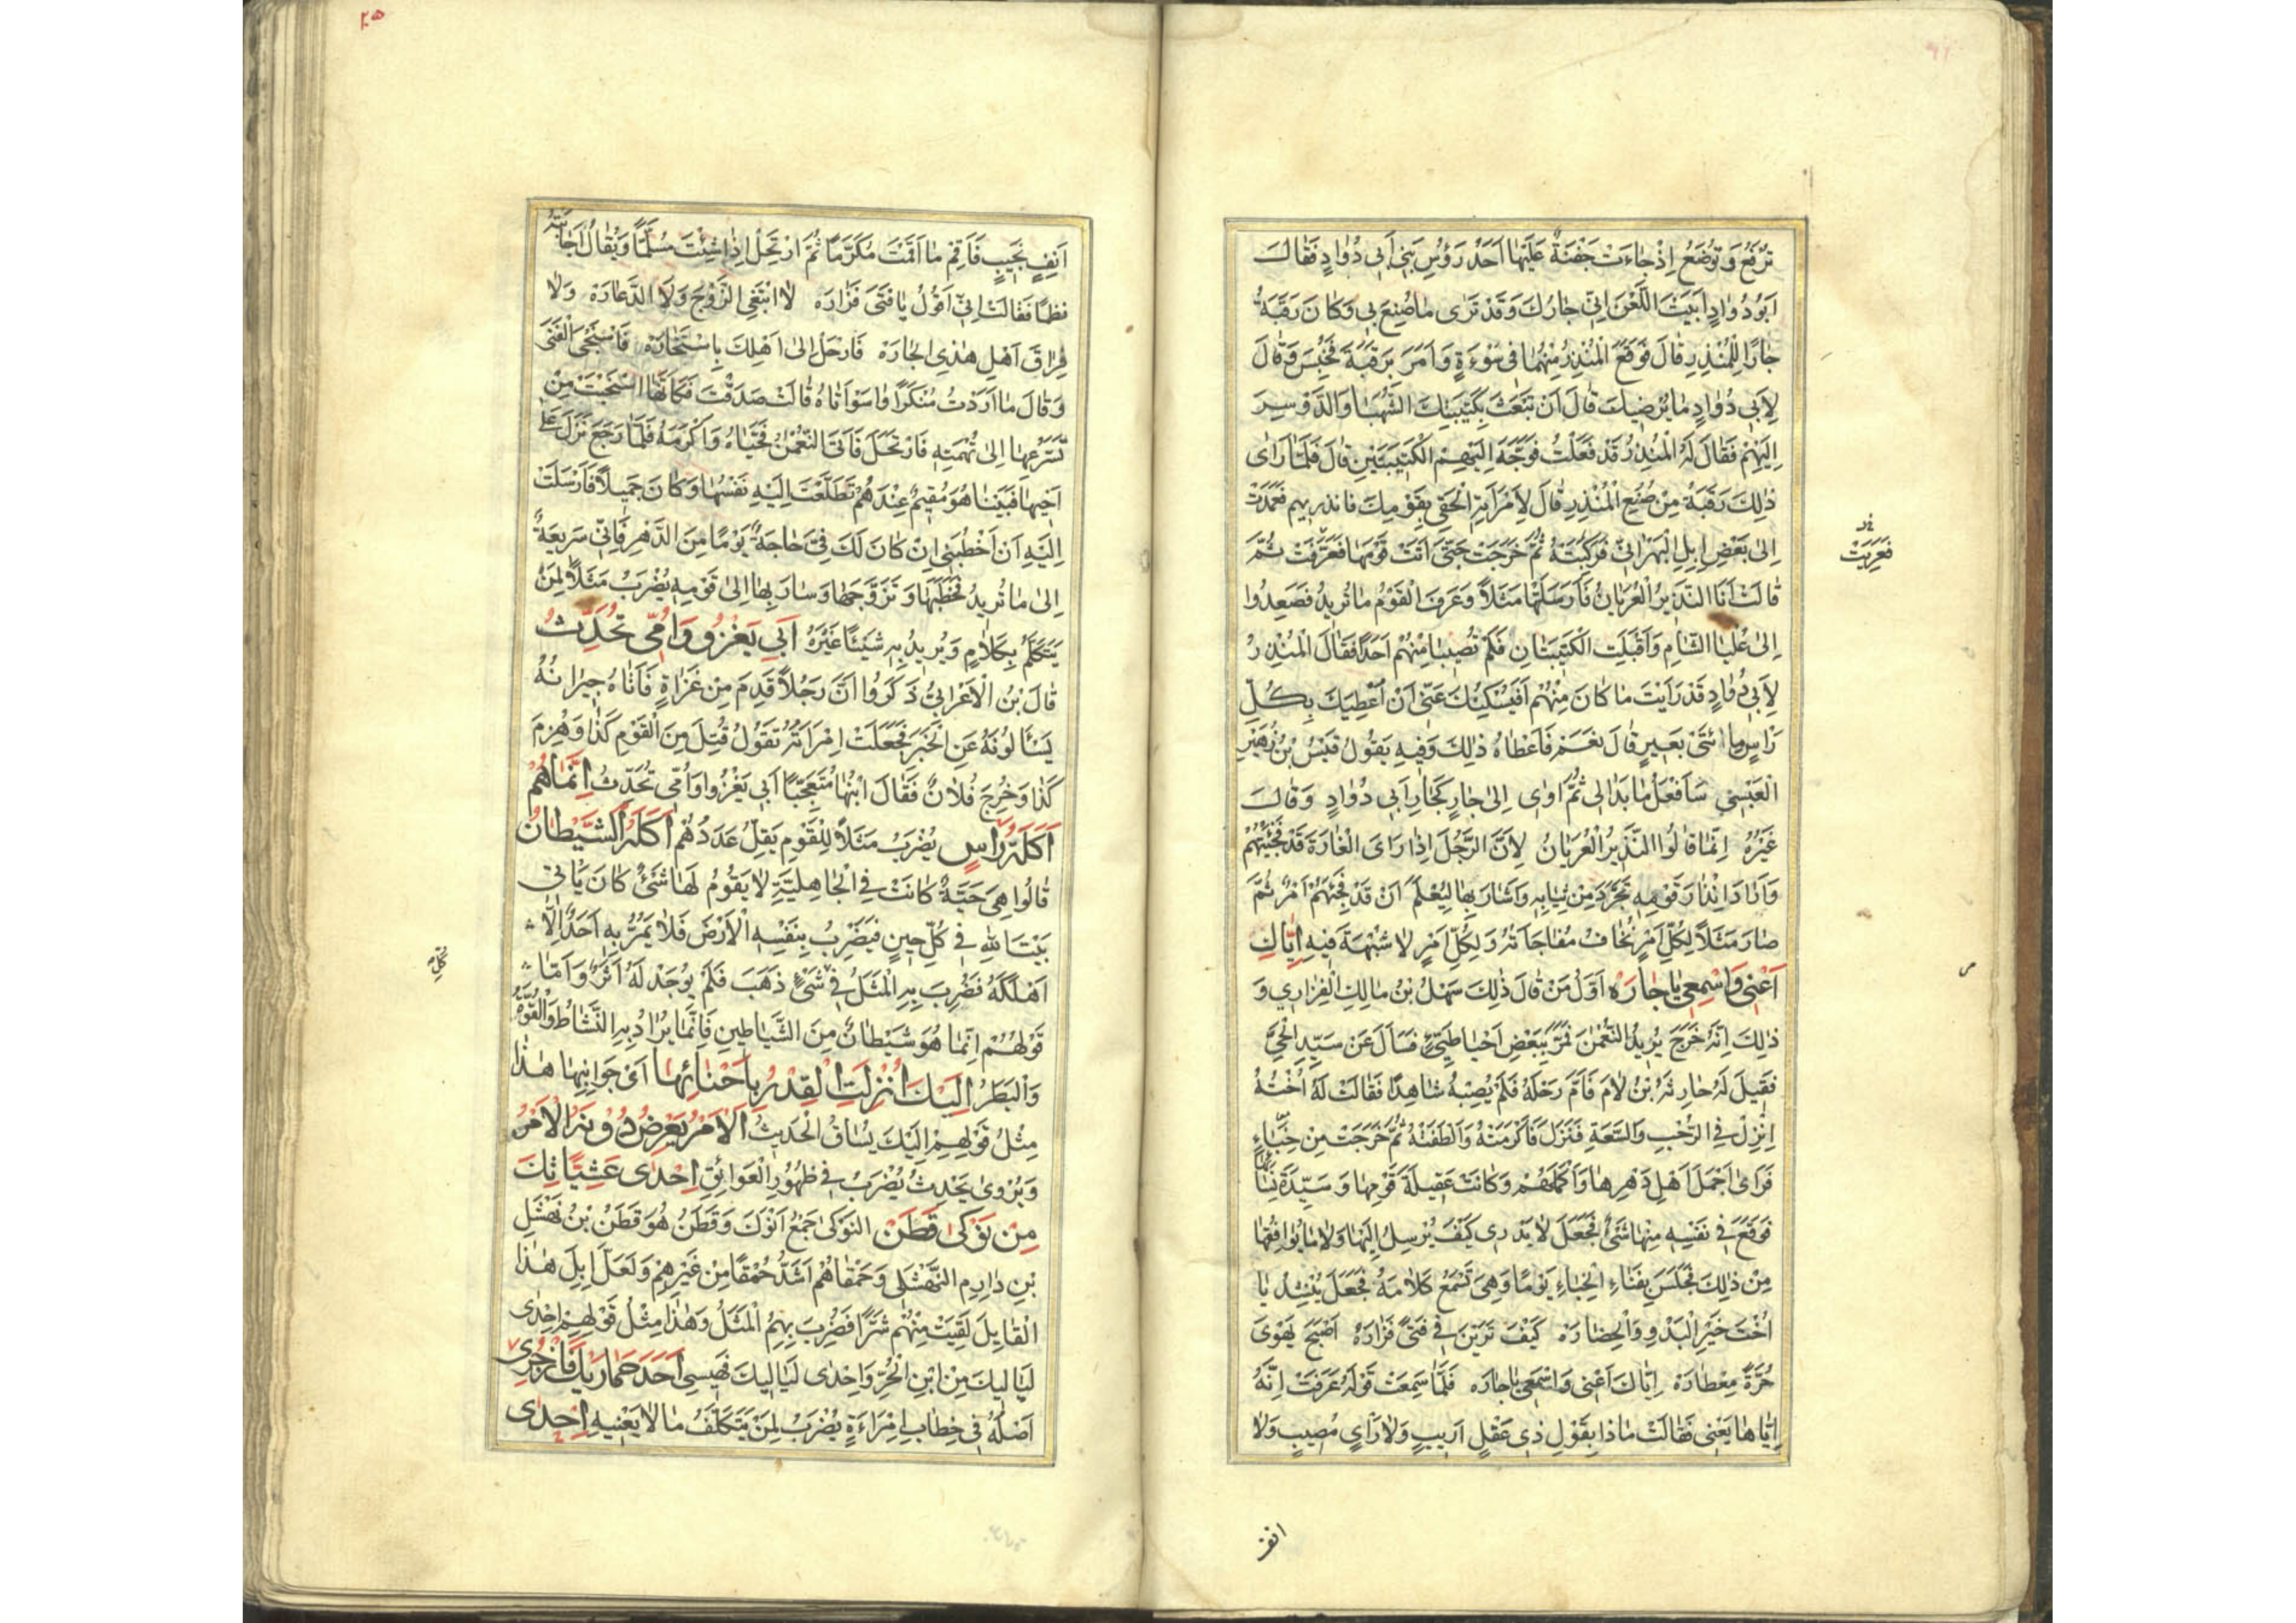 تُرْفَعُ وَتُوضَعُ اِذْ جٰاءَتْ جَفْنَةٌ عَلَيْهٰا اَحَدُ رَؤُسِ بَنِي اَبي دُوٰادٍ فَقٰالَ
اَبُودُوٰادٍ اَبَيْتَ اللَّعْنَ اِنّي جٰارُكَ وَقَدْ تَرٰى مٰا صُنِعَ بي وَكٰانَ رَقَبَةُ
جٰارًا لِلْمُنْذِرِ قٰالَ فَوَقَعَ الْمُنْذِرُ مِنْهُمٰا في سَوْءَةٍ وَاَمَرَ بِرَقَبَةَ فَحُبِسَ وَقٰالَ
لِاَبي دُوٰادٍ مٰا يُرْضِيكَ قٰالَ اَنْ تَبْعَثَ بِكَتِيبَتِكَ الشَّهْبٰا وَالدَّوْسِرَ
اِلَيْهِمْ فَقٰالَ لَهُ الْمُنْذِرُ قَدْ فَعَلْتُ فَوَجَّهَ اِلَيْهِمْ الْكَتِيبَتَيْنِ قٰالَ فَلَمّٰا رَاٰى
ذٰلِكَ رَقَبَةُ مِنْ صُنْعِ الْمُنْذِرِ قٰالَ لِاَمْرَاَتِهِ الْحَقِي بِقَوْمِكَ فانذريهم فَعَمَدَتْ
اِلىٰ بَعْضِ اِبِلِ الْبَهْرٰانِيّ فَرَكِبَتْهُ ثُمَّ خَرَجَتْ حَتّىٰ اَتَتْ قَوْمَهٰا فَعَرَّفَتْ ثُمَّ
فَعَرِيَتْ
قٰالَتْ اَنَا النَّذِيرُ الْعُرْيٰانُ فَاَرْسَلَتْهٰا مَثَلًا وَعَرَفَ الْقَوْمُ مٰا تُرِيدُ فَصَعِدُوا
اِلىٰ عُلْيَا الشّٰامِ وَاَقْبَلَتِ الْكَتِيبَتٰانِ فَلَمْ تُصِيبٰا مِنْهُمْ اَحَدًا فَقٰالَ الْمُنْذِرُ
لِاَبي دُوٰادٍ قَدْ رَاَيْتَ مٰا كٰانَ مِنْهُمْ اَفَيُسْكِتُكَ عَنّي اَنْ اُعْطِيَكَ بِكُلِّ
رَاْسٍ مِائَتَيْ بَعِيرٍ قٰالَ نَعَمْ فَاَعْطٰاهُ ذٰلِكَ وَفِيهِ يَقُولُ قَيْسُ بْنُ زُهَيْرٍ
الْعَبْسِي سَاَفْعَلُ مٰا بَدٰا لي ثُمَّ اٰوي اِلىٰ جٰارٍ كَجٰارِ اَبي دُوٰادٍ وَقٰالَ
غَيْرُهُ اِنَّمٰا قٰالُوا النَّذِيرُ الْعُرْيٰانُ لِاَنَّ الرَّجُلَ اِذٰا رَاَى الْغٰارَةَ قَدْ فَجِئَتْهُمْ
وَاَرٰادَ اِنْذٰارَ قَوْمِهِ تَجَرَّدَ مِنْ ثِيٰابِهِ وَاَشٰارَ بِهٰا لِيُعْلَمَ اَنْ قَدْ فَجِئَهُمْ اَمْرٌ ثُمَّ
صٰارَ مَثَلًا لِكُلِّ اَمْرٍ تُخٰافُ مُفٰاجٰاتُهُ وَلِكُلِّ اَمْرٍ لٰا شُبْهَةَ فِيهِ اِيّٰاكِ
اَعْنِي وَاسْمِعِي يٰا جٰارَهْ اَوَّلُ مَنْ قٰالَ ذٰلِكَ سَهْلُ بْنُ مٰالِكِ الْفَزٰارِي وَ
ذٰلِكَ اِنَّهُ خَرَجَ يُرِيدُ النُّعْمٰنَ فَمَرَّ بِبَعْضِ اَحْيٰا طَيِّئٍ فَسَاَلَ عَنْ سَيِّدِ الْحَيِّ
فَقِيلَ لَهُ حٰارِثَةُ بْنُ لٰامٍ فَاَمَّ رَحْلَهُ فَلَمْ يُصِبْهُ شٰاهِدًا فَقٰالَتْ لَهُ اُخْتُهُ
اِنْزِلْ فِي الرُّحْبِ وَالسَّعَةِ فَنَزَلَ فَاَكْرَمَتْهُ وَالْطَفَتْهُ ثُمَّ خَرَجَتْ مِنْ خِبٰاءٍ
فَرَاٰى اَجْمَلَ اَهْلِ دَهْرِهٰا وَاَكْمَلَهُمْ وَكٰانَتْ عَقِيلَةَ قَوْمِهٰا وَسَيِّدَةَ نِسٰائِهٰا
فَوَقَعَ فِي نَفْسِهِ مِنْهٰا شَئٌ فَجَعَلَ لٰا يَدْرِي كَيْفَ يُرْسِلُ اِلَيْهٰا وَلٰا مٰا يُوٰافِقُهٰا
مِنْ ذٰلِكَ فَجَلَسَ بِفَنٰاءِ الْخِبٰاءِ يَوْمًا وَهِيَ تَسْمَعُ كَلٰامَهُ فَجَعَلَ يُنْشِدُ يٰا
اُخْتَ خَيْرِ الْبَدْوِ وَالْحِضٰارَهْ كَيْفَ تَرَيْنَ فِي فَتىٰ فَزٰارَهْ اَصْبَحَ يَهْوىٰ
حُرَّةً مِعْطٰارَهْ اِيّٰاكَ اَعْنِي وَاسْمَعِي يٰا جٰارَهْ فَلَمّٰا سَمِعَتْ قَوْلَهُ عَرَفَتْ اِنَّهُ
اِيّٰاهٰا يَعْنِي فَقٰالَتْ مٰا ذٰا بِقَوْلِ ذِي عَقْلٍ اَرِيبٍ وَلٰا رَاْيٍ مُصِيبٍ وَلٰا
انف
٢٥
اَنِفٍ نَجِيبٍ فَاَقِمْ مٰا اَقَمْتَ مُكَرَّمًا ثُمَّ ارْتَحِلْ اِذٰا شِئْتَ مُسَلَّمًا وَيُقٰالُ اَجٰابَتْهُ
نظمًا فَقٰالَتْ اِنِّي اَقُولُ يٰا فَتىٰ فَزٰارَهْ لٰا اَبْتَغِي الزَّوْجَ وَلَا الدَّعٰارَهْ وَلٰا
فِرٰاقَ اَهْلِ هٰذِي الْجٰارَهْ فَارْحَلْ اِلىٰ اَهْلِكَ بِاسْتَخٰارَهْ فَاسْتَحْيَى الْفَتىٰ
وَقٰالَ مٰا اَرَدْتُ مُنْكَرًا وٰاسَوْاَتٰاهُ قٰالَتْ صَدَقْتَ فَكَاَنَّهَا اسْتَحْيَتْ مِنْ
تَسَرُّعِهٰا اِلىٰ تُهْمَتِهِ فَارْتَحَلَ فَاَتَى النُّعْمٰنَ فَحَيّٰاهُ وَاَكْرَمَهُ فَلَمّٰا رَجَعَ نَزَلَ عَلىٰ
اَخِيهٰا فَبَيْنٰا هُوَ مُقِيمٌ عِنْدَهُمْ تَطَلَّعَتْ اِلَيْهِ نَفْسُهٰا وَكٰانَ جَمِيلًا فَاَرْسَلَتْ
اِلَيْهِ اَنْ اَخْطُبْنِي اِنْ كٰانَ لَكَ فِيَّ حٰاجَةٌ يَوْمًا مِنَ الدَّهْرِ فَاِنِّي سَرِيعَةٌ
اِلىٰ مٰا تُرِيدُ فَخَطَبَهٰا وَتَزَوَّجَهٰا وَسٰارَ بِهٰا اِلىٰ قَوْمِهِ يُضْرَبُ مَثَلًا لِمَنْ
يَتَكَلَّمُ بِكَلٰامٍ وَيُرِيدُ بِهِ شَيْئًا غَيْرَهُ اَبِي يَغْزُو وَاُمِّي تُحَدِّثُ
قٰالَ بْنُ الْاَعْرٰابِيُّ ذَكَرُوا اَنَّ رَجُلًا قَدِمَ مِنْ غَزٰاةٍ فَاَتٰاهُ جِيرٰانُهُ
يَسْاَلُونَهُ عَنِ الْخَبَرِ فَجَعَلَتْ اِمْرَاَتُهُ تَقُولُ قُتِلَ مِنَ الْقَوْمِ كَذٰا وَهُزِمَ
كَذٰا وَخُرِجَ فُلٰانٌ فَقٰالَ ابْنُهٰا مُتَعَجِّبًا اَبِي يَغْزُوا وَاُمِّي تُحَدِّثُ اِنَّمٰا هُمْ
اَكَلَةُ رَاْسٍ يُضْرَبُ مَثَلًا لِلْقَوْمِ يَقِلُّ عَدَدُهُمْ اَكَلَهُ الشَّيْطٰانُ
قٰالُوا هِيَ حَيَّةٌ كٰانَتْ فِي الْجٰاهِلِيَّةِ لٰا يَقُومُ لَهٰا شَئٌ كٰانَ يَاْتِي
بَيْتَ اللهِ فِي كُلِّ حِينٍ فَيَضْرِبُ بِنَفْسِهِ الْاَرْضَ فَلٰا يَمُرُّ بِهِ اَحَدٌ اِلّٰا
اَهْلَكَهُ فَضُرِبَ بِهِ الْمَثَلُ فِي شَئٍ ذَهَبَ فَلَمْ يُوجَدْ لَهُ اَثَرٌ وَاَمّٰا
قَوْلُهُمْ اِنَّمٰا هُوَ شَيْطٰانٌ مِنَ الشَّيٰاطِينِ فَاِنَّمٰا يُرٰادُ بِهِ النَّشٰاطُ وَالْقُوَّةُ
وَالْبَطَرُ اِلَيْكَ اُنْزِلَتِ الْقِدْرُ بِاَحْنٰائِهٰا اَيْ جَوٰانِبِهٰا هٰذٰا
مِثْلُ قَوْلِهِمْ اِلَيْكَ يُسٰاقُ الْحَدِيثُ اَلْاَمْرُ يَعْرِضُ دُونَهُ الْاَمْرُ
وَيُرْوىٰ يَحْدِثُ يُضْرَبُ فِي ظُهُورِ الْعَوٰائِقِ اِحْدٰى عَشِيّٰاتِكَ
مِنْ نَوْكىٰ قَطَنٍ النَوْكىٰ جَمْعُ اَنْوَكَ وَقَطَنُ هُوَ قَطَنُ بْنُ نَهْشَلِ
بْنِ دٰارِمِ النَّهْشَلي وَحَمْقٰاهُمْ اَشَدُّ حُمْقًا مِنْ غَيْرِهِمْ وَلَعَلَّ اِبِلَ هٰذَا
الْقٰايِلَ لَقِيَتْ مِنْهُمْ شَرًّا فَضُرِبَ بِهِمُ الْمَثَلُ وَهٰذٰا مِثْلُ قَوْلِهِمْ اِحْدٰى
لَيٰالِيكَ مِنْ ابْنِ الْحُرِّ وَاِحْدٰى لَيٰالِيكَ فَهِيسِي اَحَدَ حِمٰارَيْكِ فَازْجُرِي
اَصْلُهُ فِي خِطٰابِ اِمْرَاءَةٍ يُضْرَبُ لِمَنْ يَتَكَلَّفُ مٰا لٰا يَعْنِيهِ اِحْدٰى